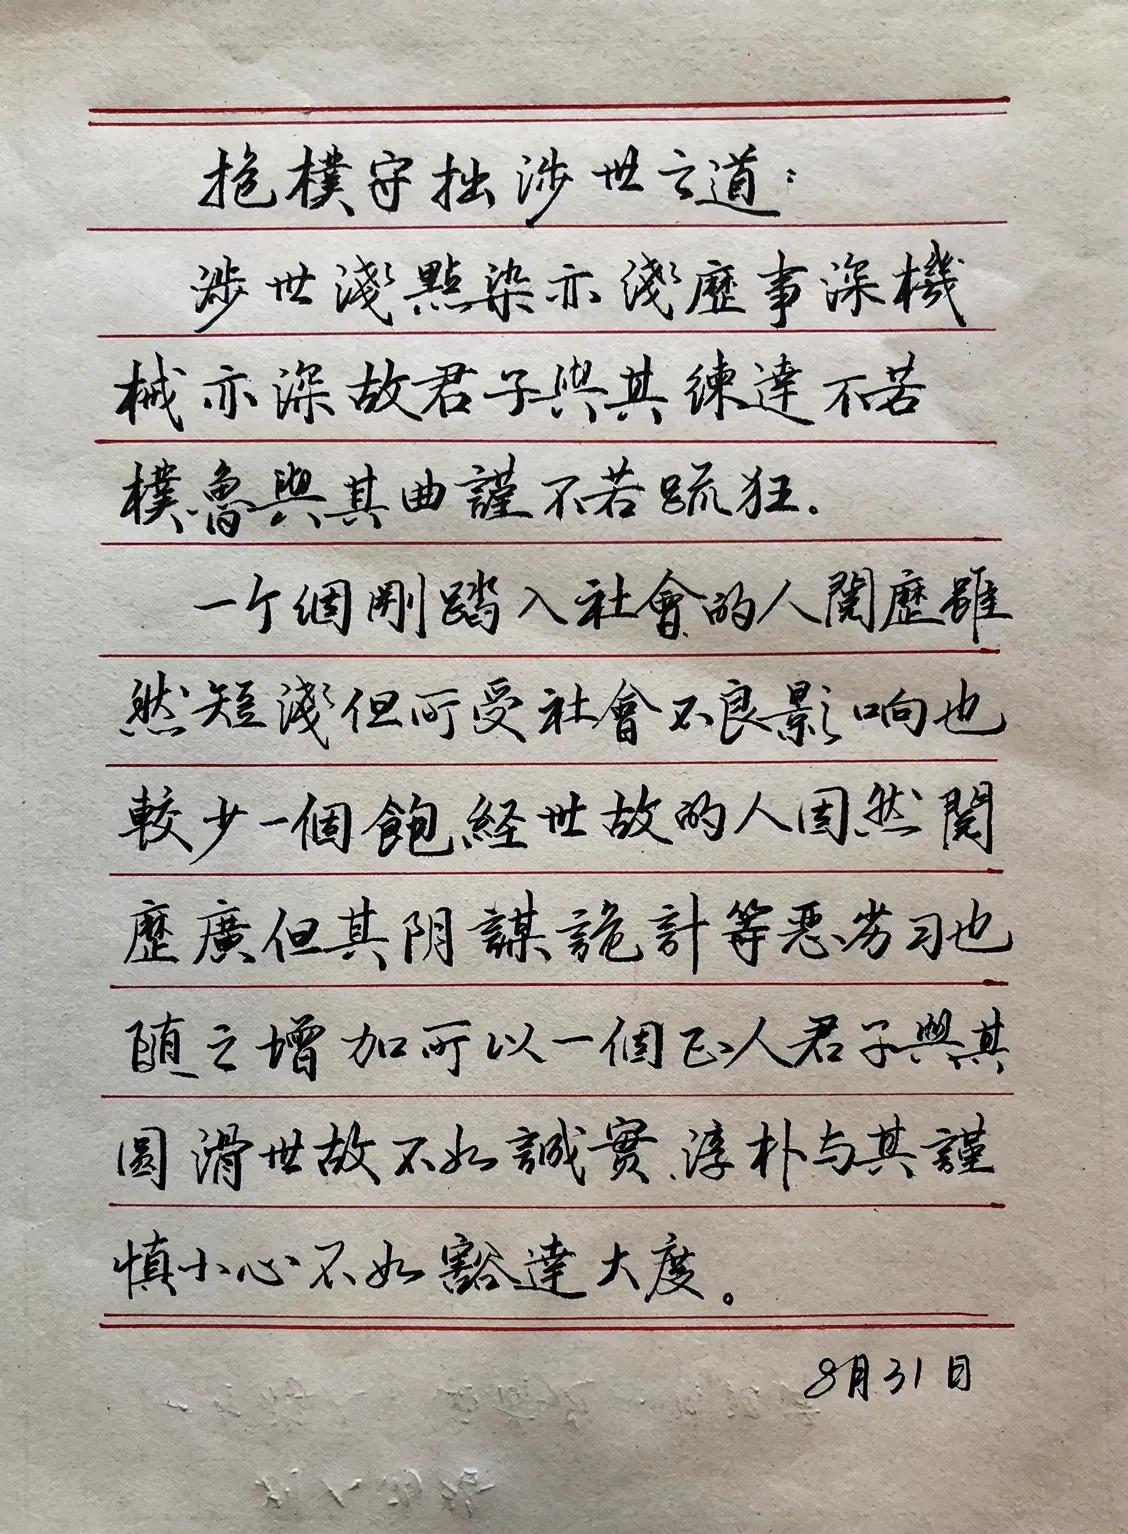 抱樸守拙涉世之道：
涉世淺點染亦淺歷事深機
械亦深故君子與其練達不若
樸魯與其曲謹不若疏狂.
一个個剛踏入社會的人閱歷雖
然短淺但所受社會不良影响也
較少一個飽経世故的人固然閱
歷廣但其阴謀詭計等恶劣习也
随之增加所以一個正人君子與其
圆滑世故不如誠實淳朴与其謹
慎小心不如豁達大度。
8月31日